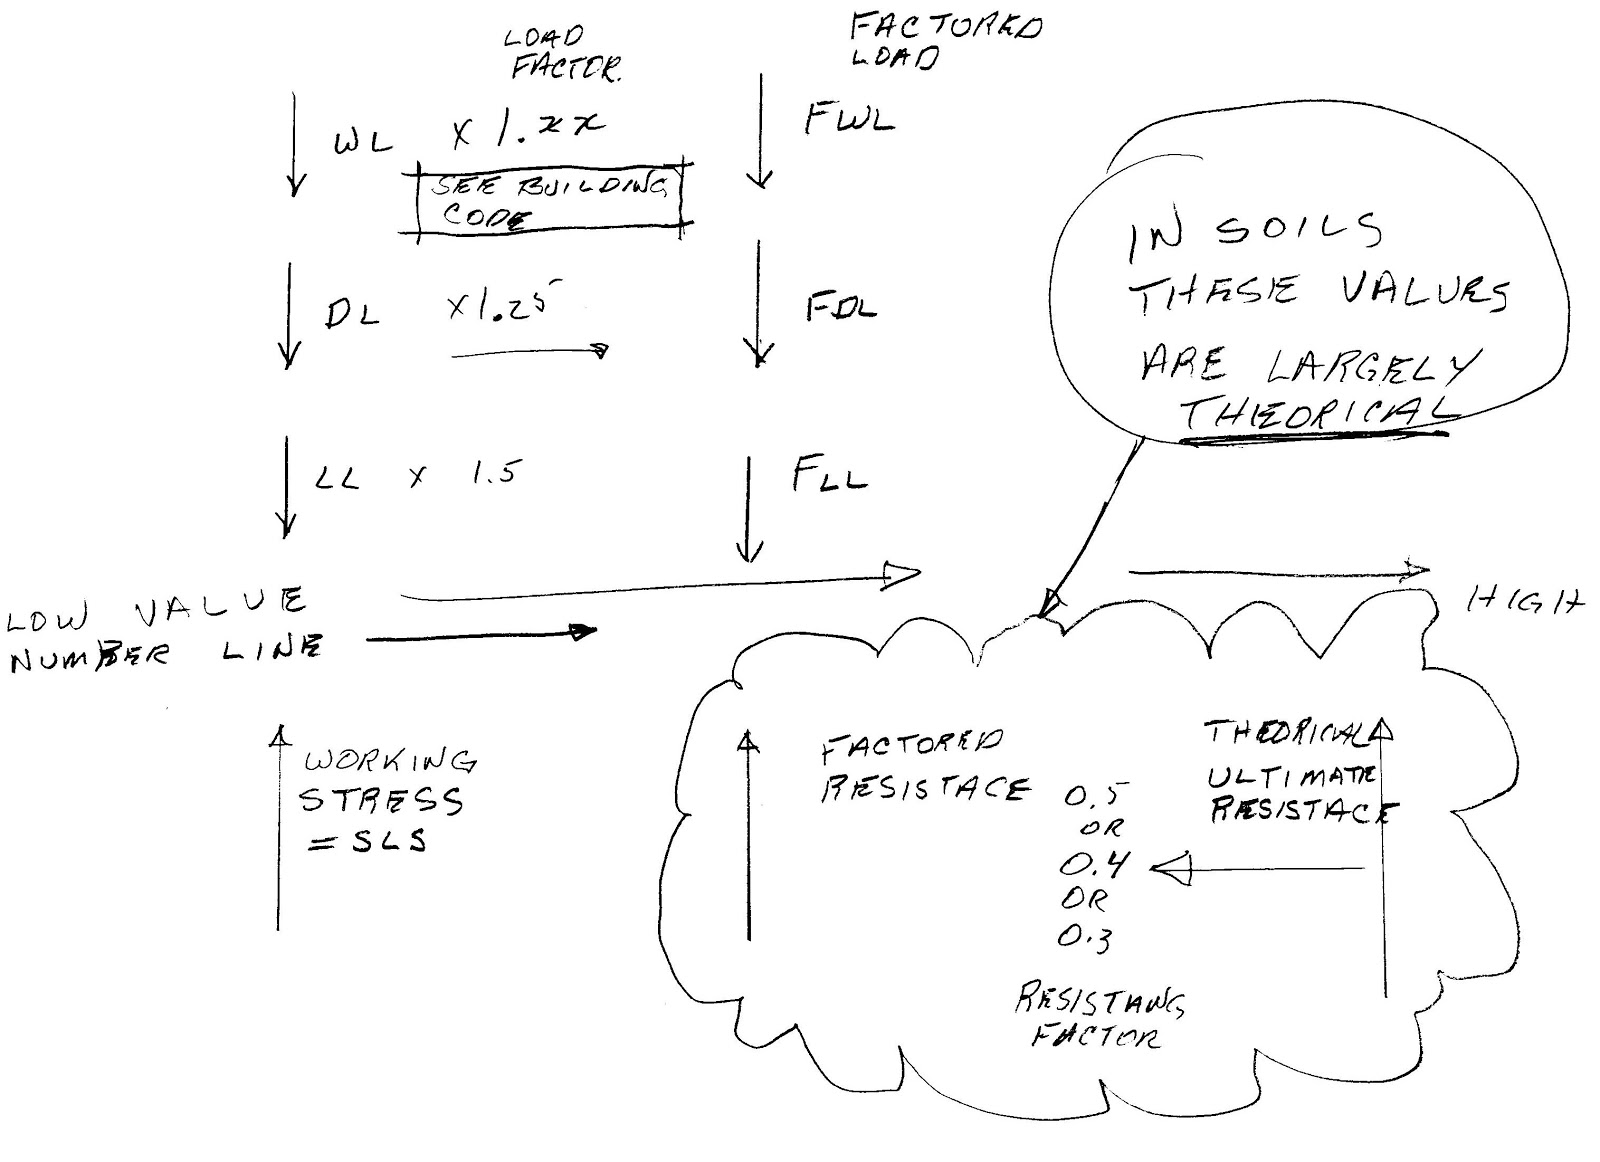 LOAD
FACTOR.
FACTORED
LOAD
WL x 1.xx
FWL
SEE BUILDING
CODE
DL x1.25
FDL
LL x 1.5
FLL
IN SOILS
THESE VALUES
ARE LARGELY
THEORICAL
LOW VALUE
NUMBER LINE
HIGH
WORKING
STRESS
= SLS
FACTORED
RESISTACE
0.5
OR
0.4
OR
0.3
RESISTANG
FACTOR
THEORICAL
ULTIMATE
RESISTACE